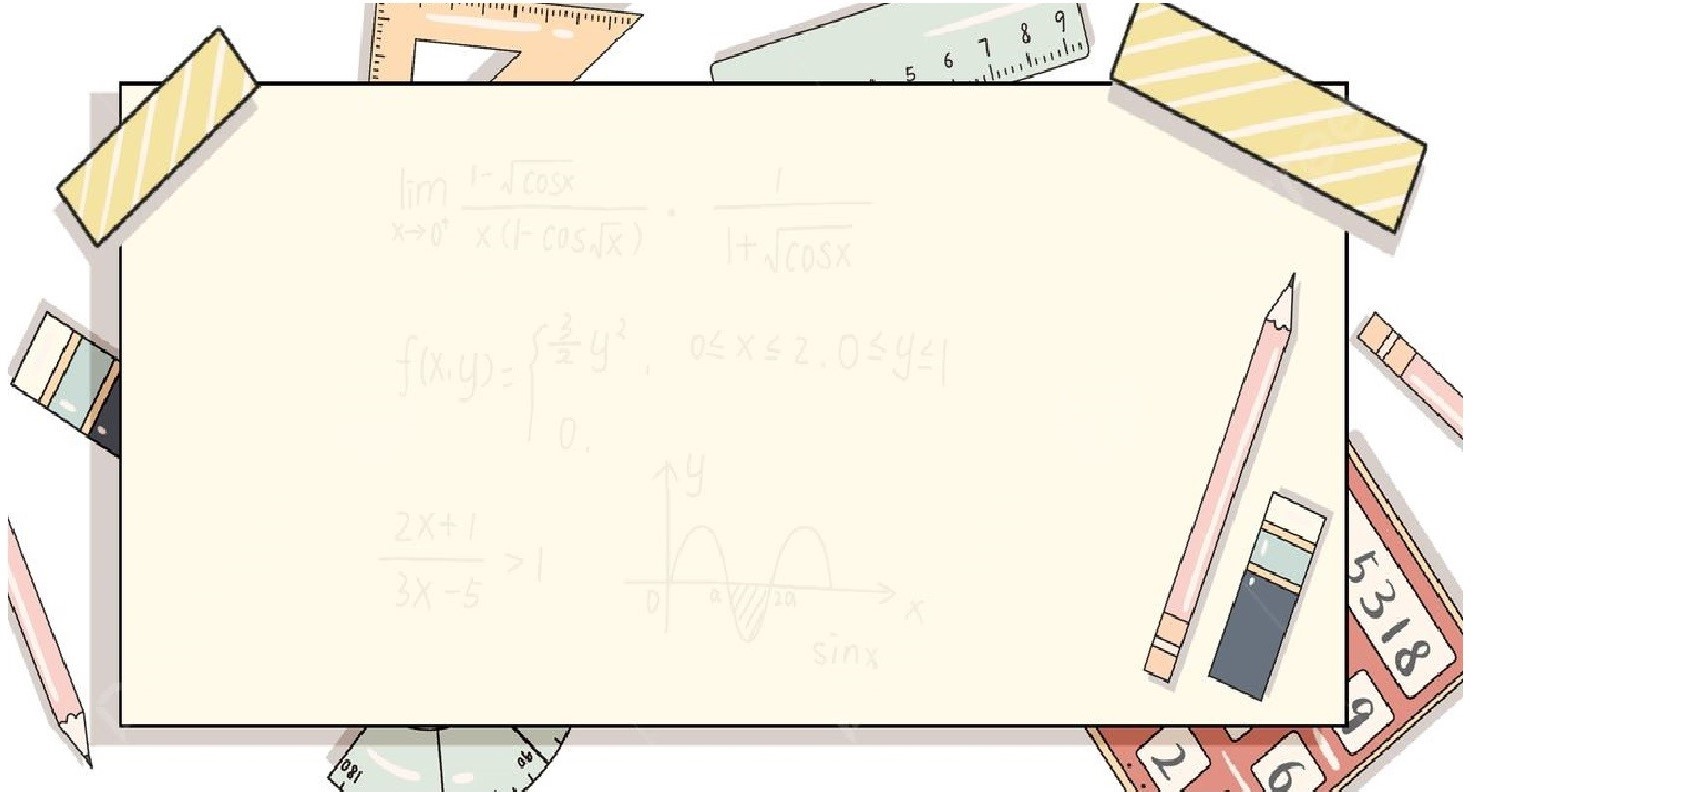 5 6 7 8 9
lim x→0⁺ (1-√cosx)/(x(1-cos√x)) · 1/(1+√cosx)
f(x,y)={ 3/2 y², 0≤x≤2, 0≤y≤1
0,
y
(2x+1)/(3x-5) >1
0 a 2a x
sinx
5318
9
2 6
180 90